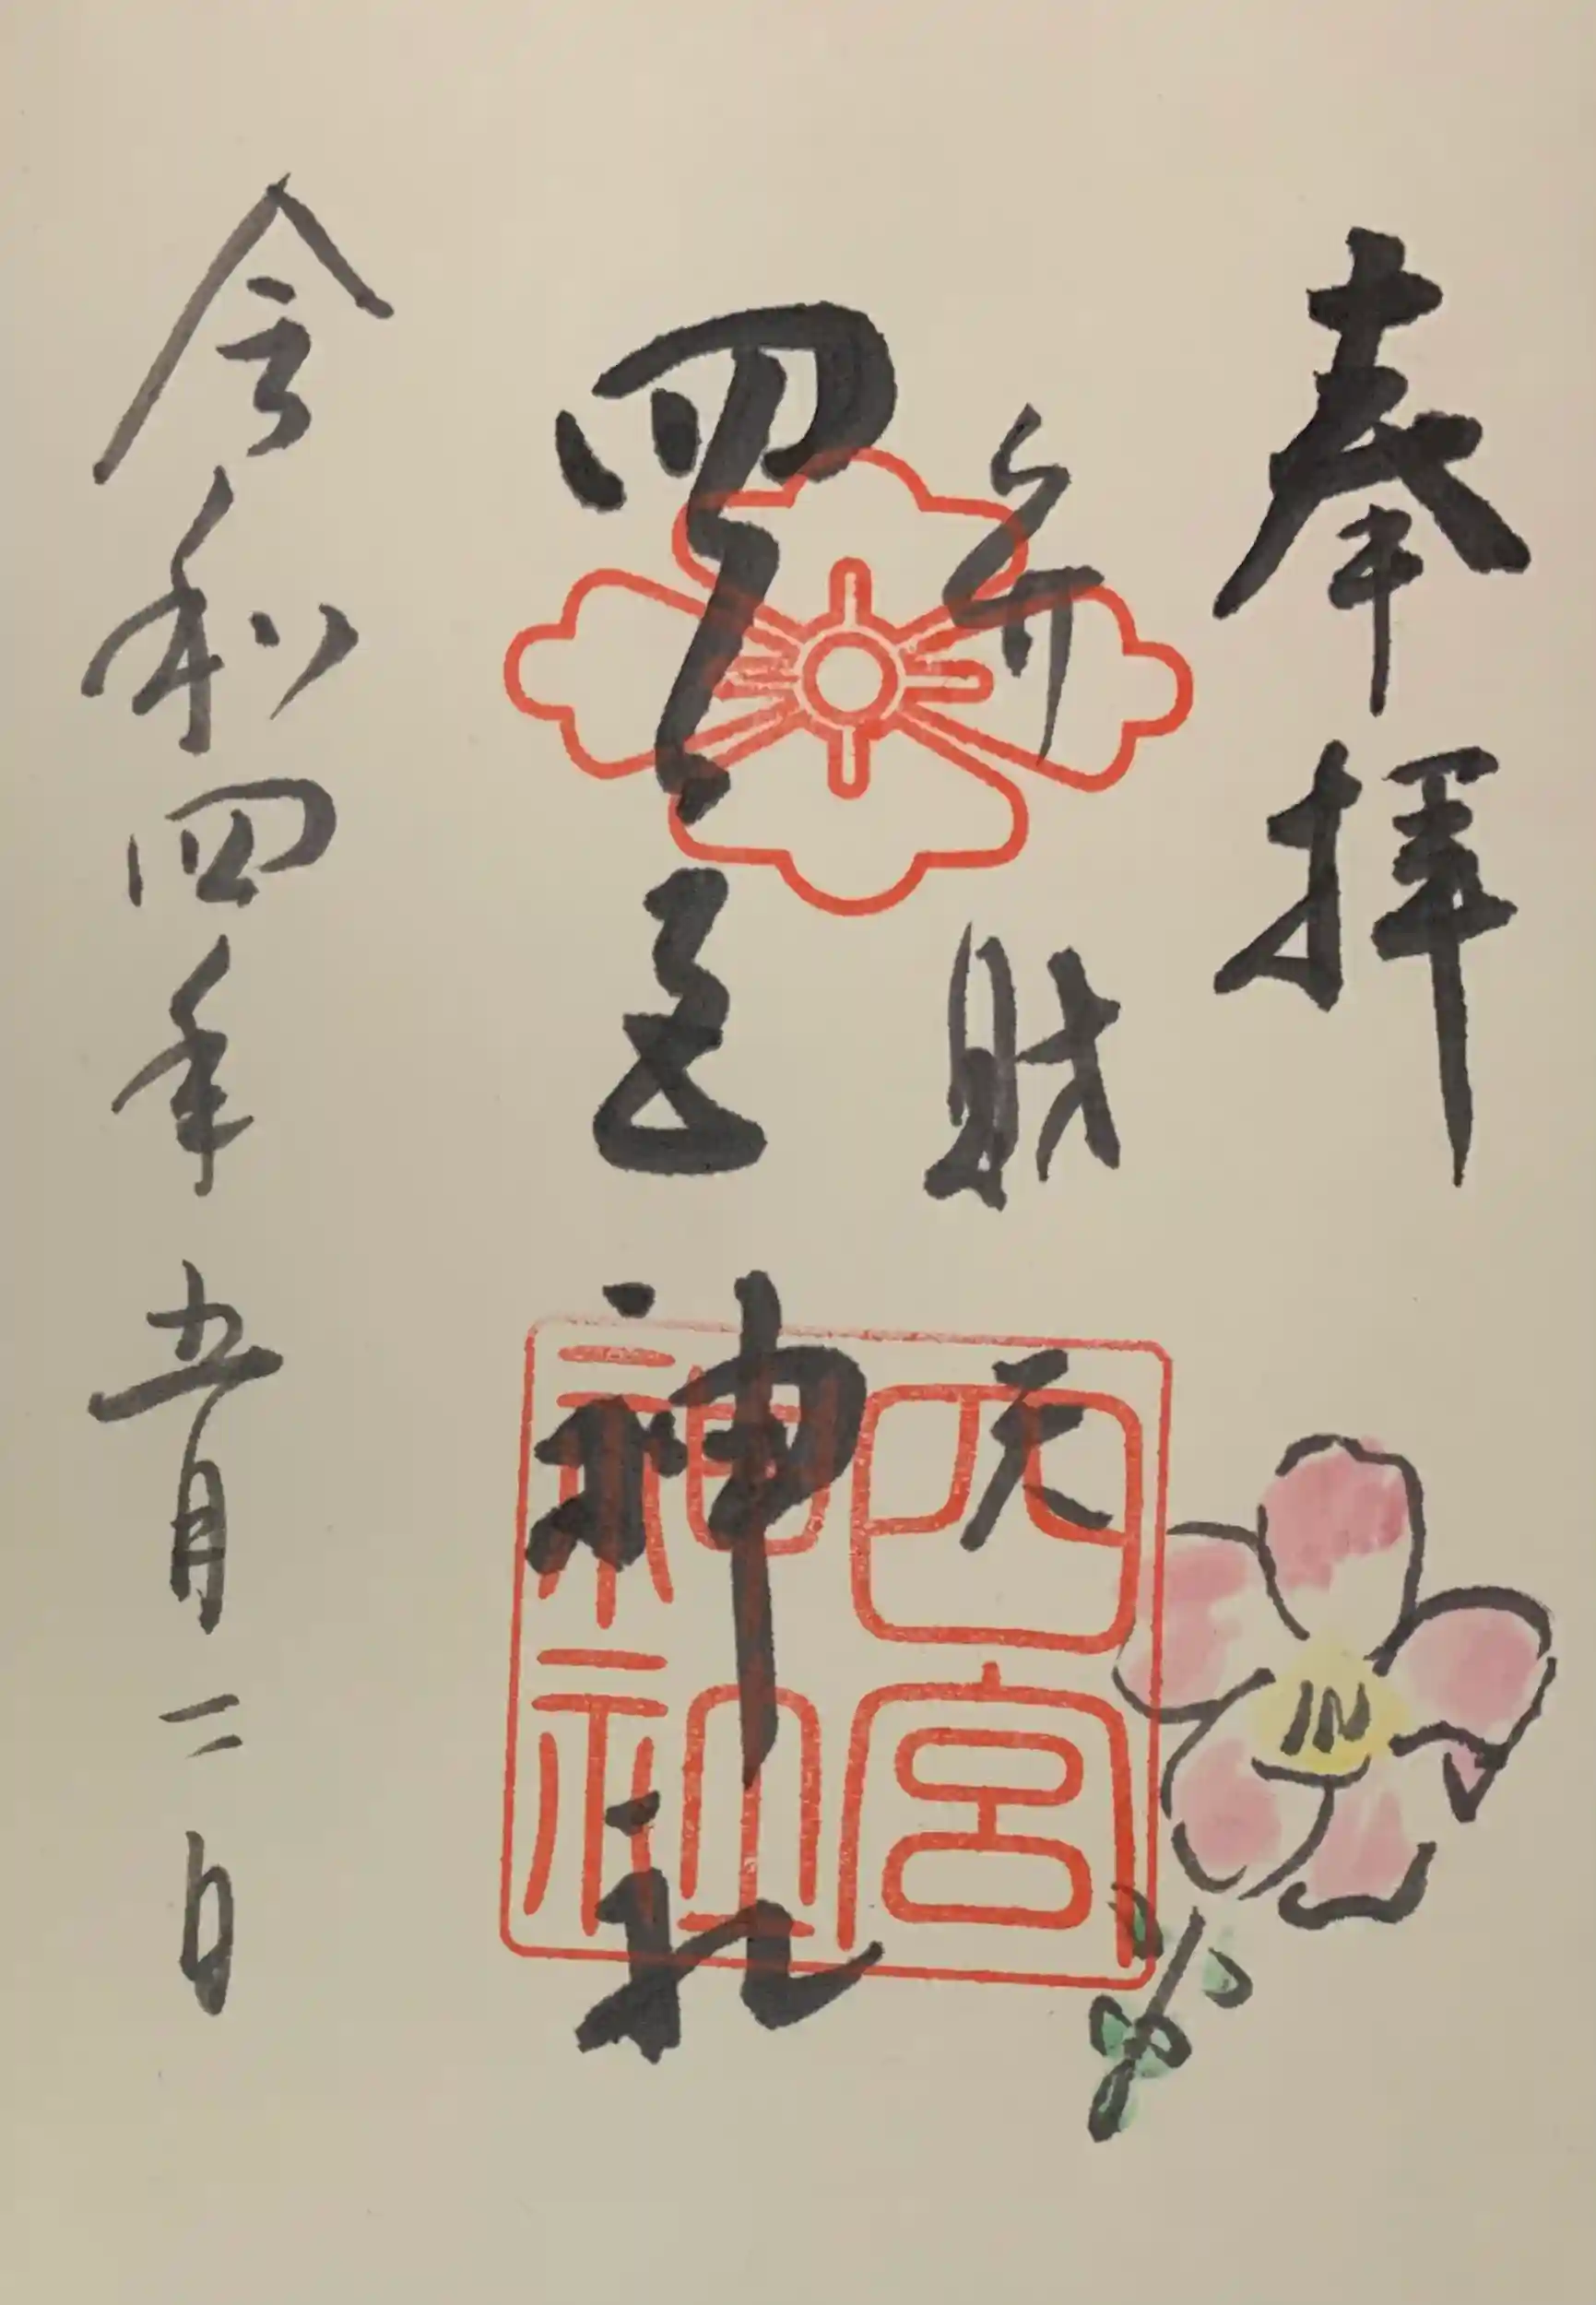 奉拝
弁財天
四宮神社
令和四年五月二日
四宮
神社